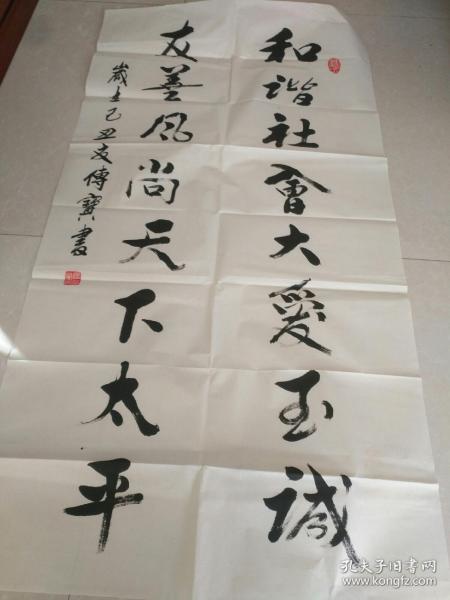 和諧社會大愛至誠
友善风尚天下太平
歲在己丑傳寶書
孔夫子旧书网
www.kongfz.com